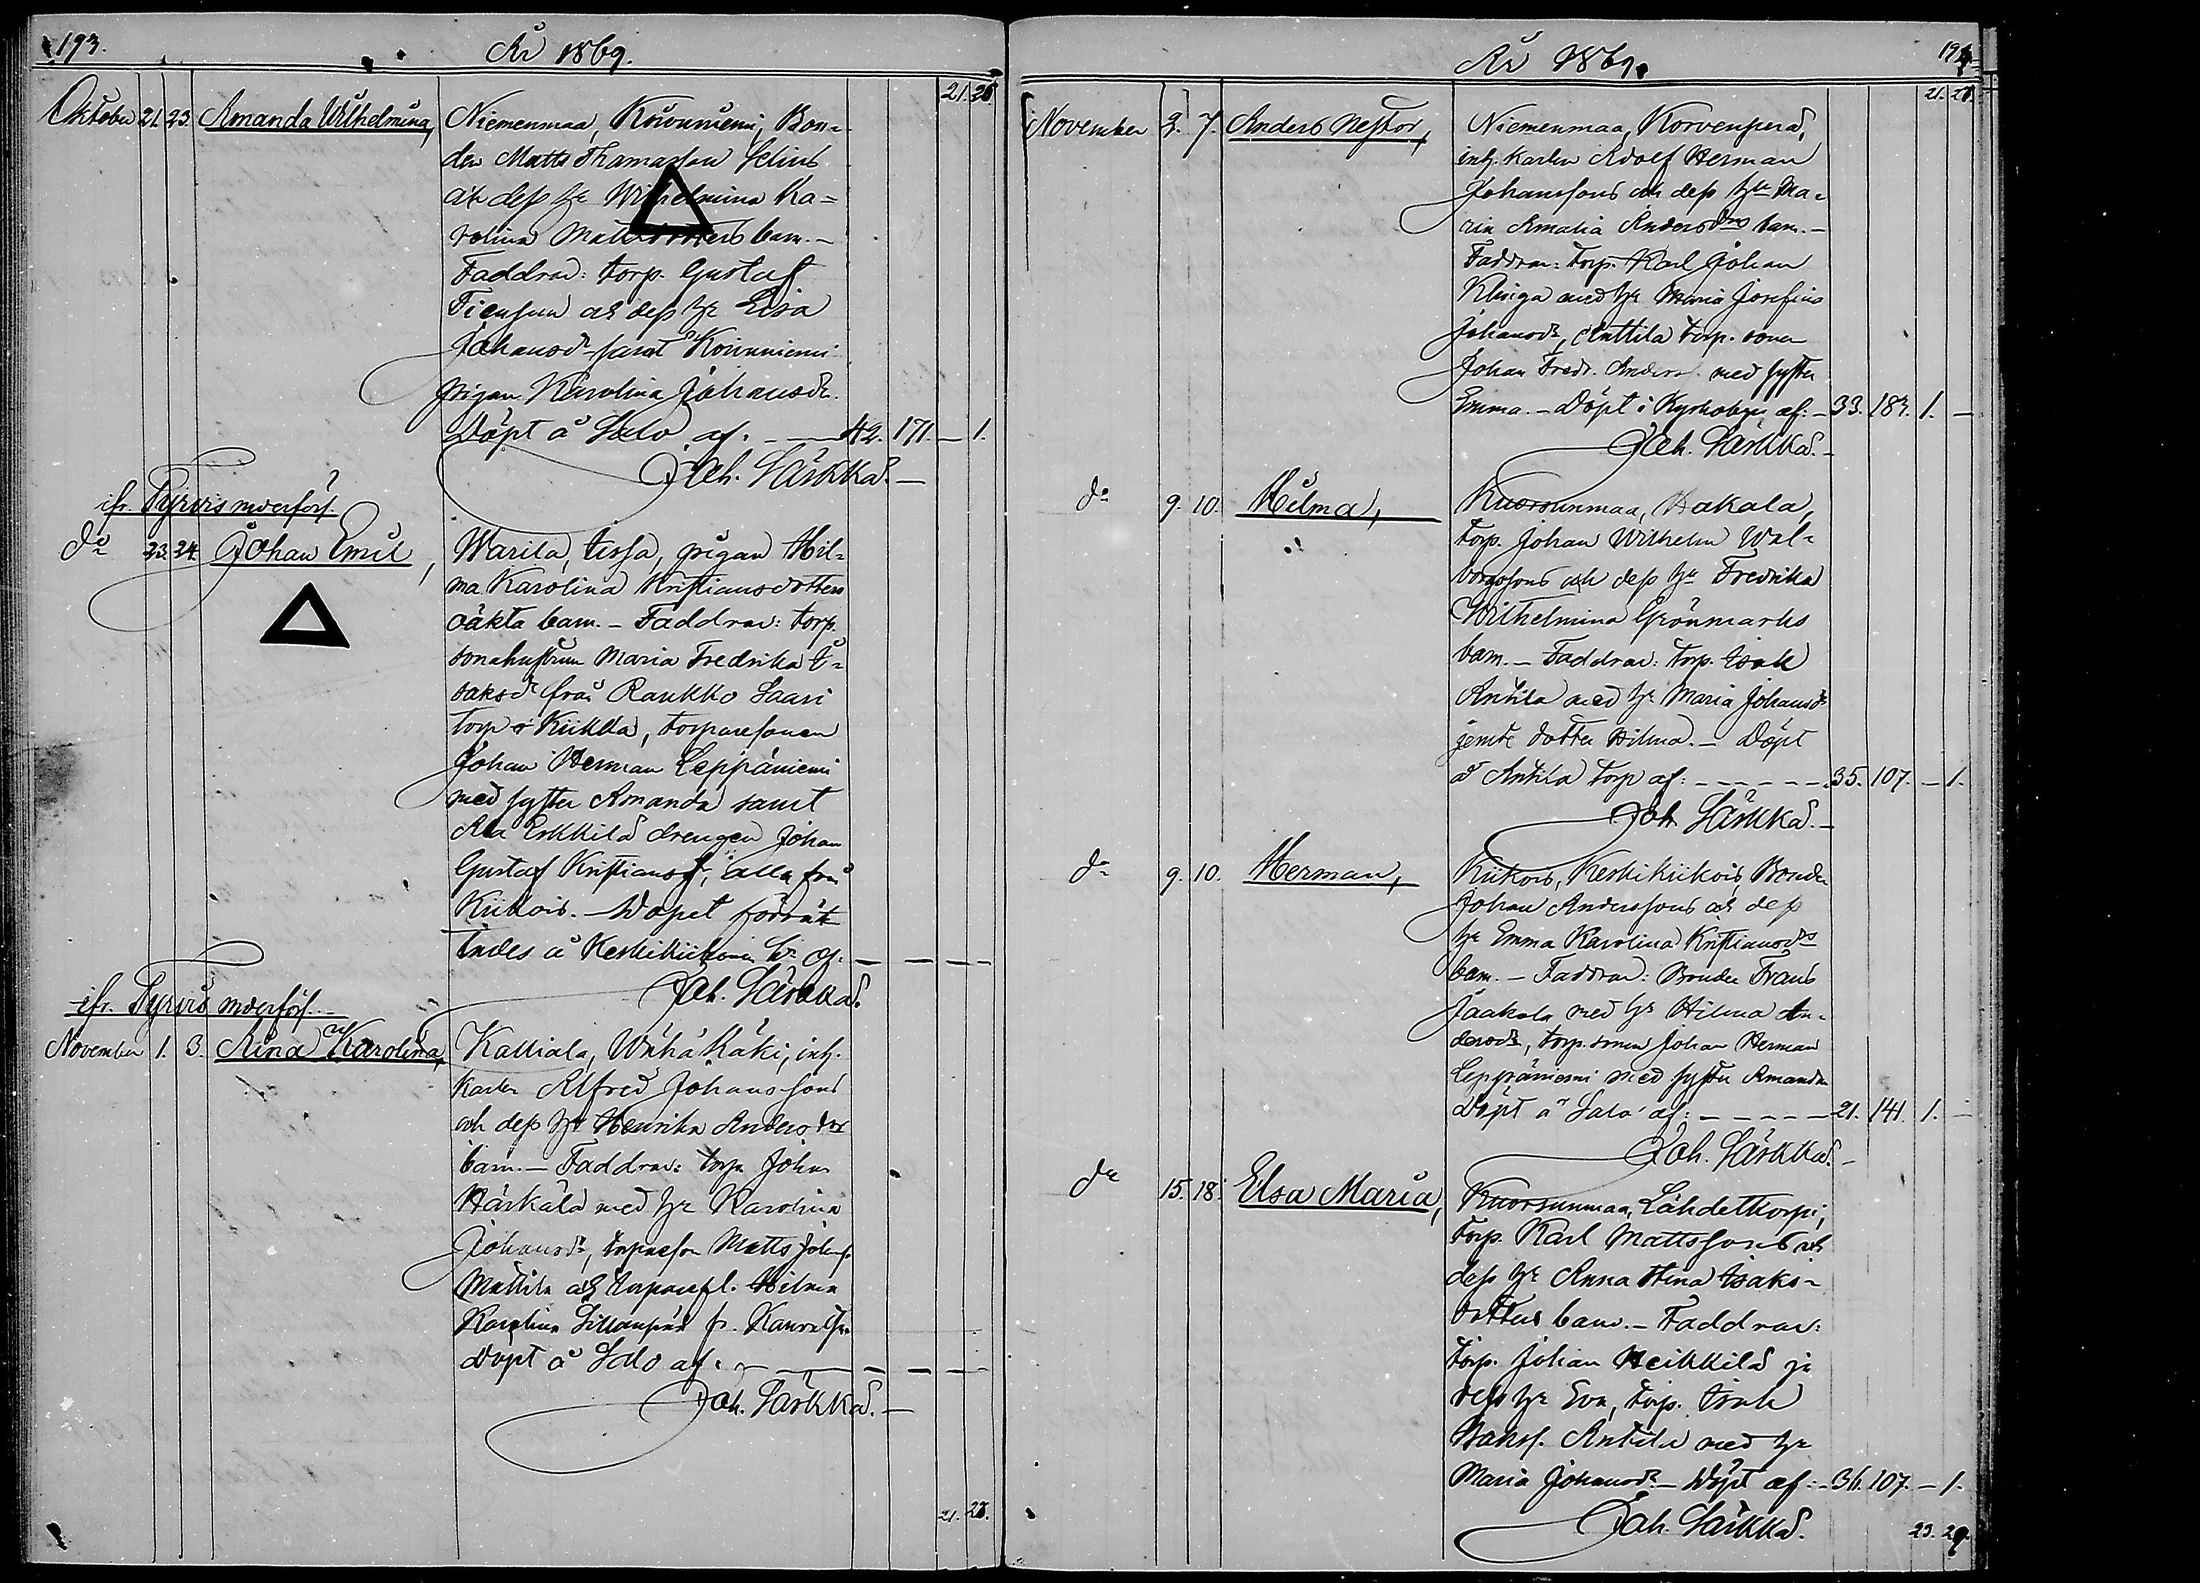 193.
År 1869.
21. 26
Oktober 21. 23. Amanda Wilhelmina,
Niemenmaa, Kouvuniemi, Bon-
den Matts Thomasson Selins
och dess h:u Wilhelmina Ka-
rolina Mattsdotters barn.-
Faddrar: torp. Gustaf
och dess h:u Lisa
Johansd:r samt Kouvuniemi
pigan Karolina Johansd:r.
Döpt å Salo af. 42. 171. — 1.
Joh. Särkkä.
ifr. Tyrvis moderförs.
d:o 23. 24. Johan Emil,
Warila, Lissa, pigan Hil-
ma Karolina Kristiansdotters
oäkta barn. - Faddrar: torp.
sonahustrun Maria Fredrika I-
saksd:r från Raukko Saari
torp i Kiikka, torparesonen
Johan Herman Leppäniemi
med syster Amanda samt
Ala Erkkilä drengen Johan
Gustaf Kristianss:n, alla från
Kiikois. - Dopet förrät
tades å Keskikiikois h:n af:
Joh. Särkkä.
ifr. Tyrvis moderförs.
November 1. 3. Aina Karolina,
Kalliala, Wähä Käki, inh.
karlen Alfred Johanssons
och dess h:u Henrika Andersd:rs
barn. - Faddrar: torp. Johan
Härkälä med h:u Karolina
Johansd:r, torpareson Matts Johss.
Mattila och torparefl. Hilma
Karolina Sillanpää fr.
Döpt å Salo af.
Joh. Särkkä.
21. 28.
År 1869.
194.
21. 28.
November 2. 7. Anders Nestor,
Niemenmaa, Korvenperä,
inh. karlen Adolf Herman
Johanssons och dess h:u Ma-
ria Amalia Andersd:rs barn.-
Faddrar: torp. Karl Johan
med h:u Maria Josefina
Johansd:r, Anttila torp. sonen
Johan Fredr. Anderss. med syster
Emma. - Döpt i Kyrkobyn af: - 33. 183. 1. —
Joh. Särkkä.
d:o 9. 10. Hilma,
Kuorsunmaa, Hakala,
torp. Johan Wilhelm Wal-
borgssons och dess h:u Fredrika
Wilhelmina Grönmarks
barn. - Faddrar: torp. Isak
Antila med h:u Maria Johansd:r
jemte dotter Hilma. - Döpt
å Antila torp af: 35. 107. — 1.
Joh. Särkkä.
d:o 9. 10. Herman,
Kiikois, Keskikiikois, Bonden
Johan Anderssons och dess
h:u Emma Karolina Kristiansd:rs
barn. - Faddrar: Bonden Frans
Jaakola med h:u Hilma An-
dersd:r, torp. sonen Johan Herman
Leppäniemi med syster Amanda
Döpt å Salo af: 21. 141. 1. —
Joh. Särkkä.
d:o 15. 18. Elsa Maria,
Kuorsunmaa, Lähdettkorpi,
torp. Karl Mattssons och
dess h:u Anna Stina Isaks-
dotters barn. - Faddrar:
torp. Johan Heikkilä ja
dess h:u Eva, torp. Isak
Isakss. Antila med h:u
Maria Johansd:r - Döpt af: - 36. 107. — 1.
Joh. Särkkä.
23. 29.